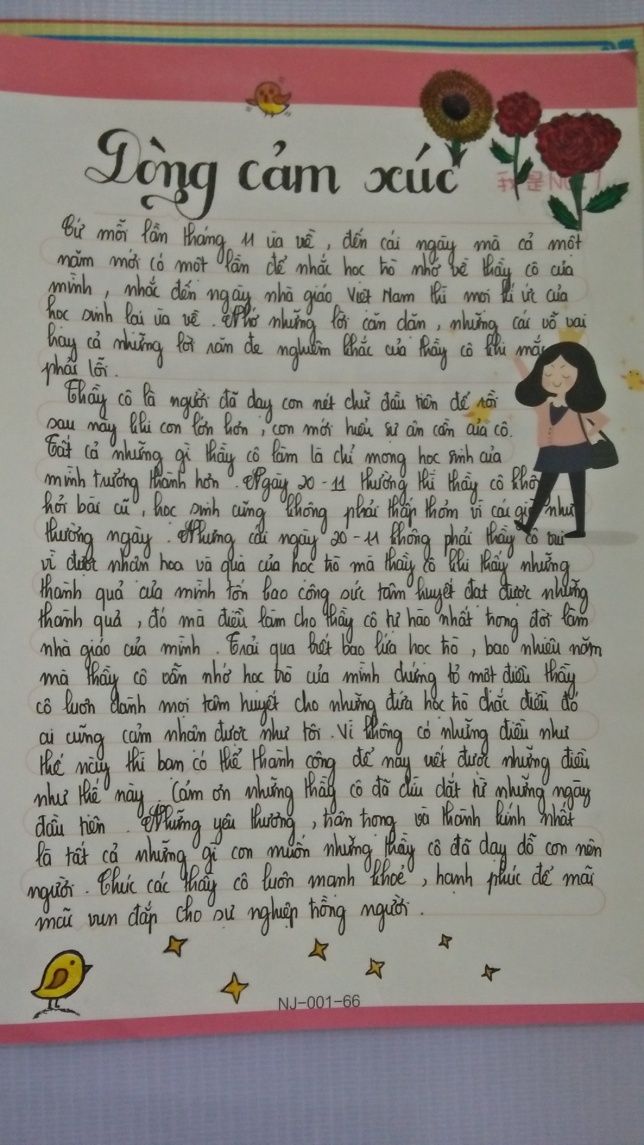 Dòng cảm xúc
我是NO.1
Cứ mỗi lần tháng 11 ùa về, đến cái ngày mà cả một
năm mới có một lần để nhắc học trò nhớ về thầy cô của
mình, nhắc đến ngày nhà giáo Việt Nam thì mọi kí ức của
học sinh lại ùa về. Nhớ những lời căn dặn, những cái vỗ vai
hay cả những lời răn đe nghiêm khắc của thầy cô khi mắc
phải lỗi.
Thầy cô là người đã dạy con nét chữ đầu tiên để rồi
sau này khi con lớn hơn, con mới hiểu sự ân cần của cô.
Tất cả những gì thầy cô làm là chỉ mong học sinh của
mình trưởng thành hơn. Ngày 20-11 thường thì thầy cô khô
hỏi bài cũ, học sinh cũng không phải thấp thỏm vì cái gì như
thường ngày. Nhưng cái ngày 20-11 không phải thầy cô vui
vì được nhận hoa và quà của học trò mà thầy cô khi thấy những
thành quả của mình tốn bao công sức tâm huyết đạt được những
thành quả, đó mà điều làm cho thầy cô tự hào nhất trong đời làm
nhà giáo của mình. Trải qua biết bao lứa học trò, bao nhiêu năm
mà thầy cô vẫn nhớ học trò của mình chứng tỏ một điều thầy
cô luôn dành mọi tâm huyết cho những đứa học trò chắc điều đó
ai cũng cảm nhận được như tôi. Vì không có những điều như
thế này thì bạn có thể thành công để này viết được những điều
như thế này. Cám ơn những thầy cô đã dìu dắt từ những ngày
đầu tiên. Những yêu thương, trân trọng và thành kính nhất
là tất cả những gì con muốn những thầy cô đã dạy dỗ con nên
người. Chúc các thầy cô luôn mạnh khoẻ, hạnh phúc để mãi
mãi vun đắp cho sự nghiệp trồng người.
NJ-001-66